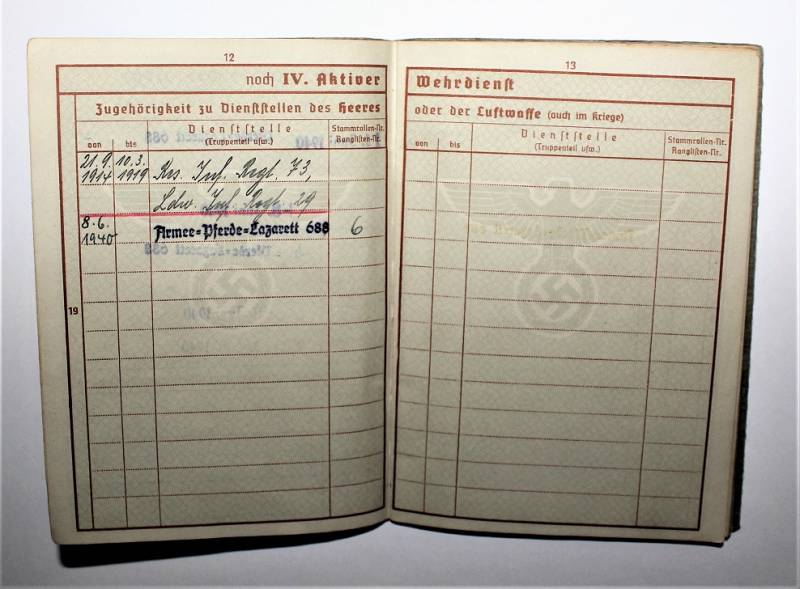 12
noch IV. Aktiver
Zugehörigkeit zu Dienststellen des Heeres
von bis Dienststelle (Truppenteil usw.) Stammrollen-Nr. Ranglisten-Nr.
21.9. 10.3. Res. Inf. Regt. 73,
1914 1919
Ldw. Inf. Regt. 29
8.6. Armee=Pferde=Lazarett 688 6
1940
19
13
Wehrdienst
oder der Luftwaffe (auch im Kriege)
von bis Dienststelle (Truppenteil usw.) Stammrollen-Nr. Ranglisten-Nr.